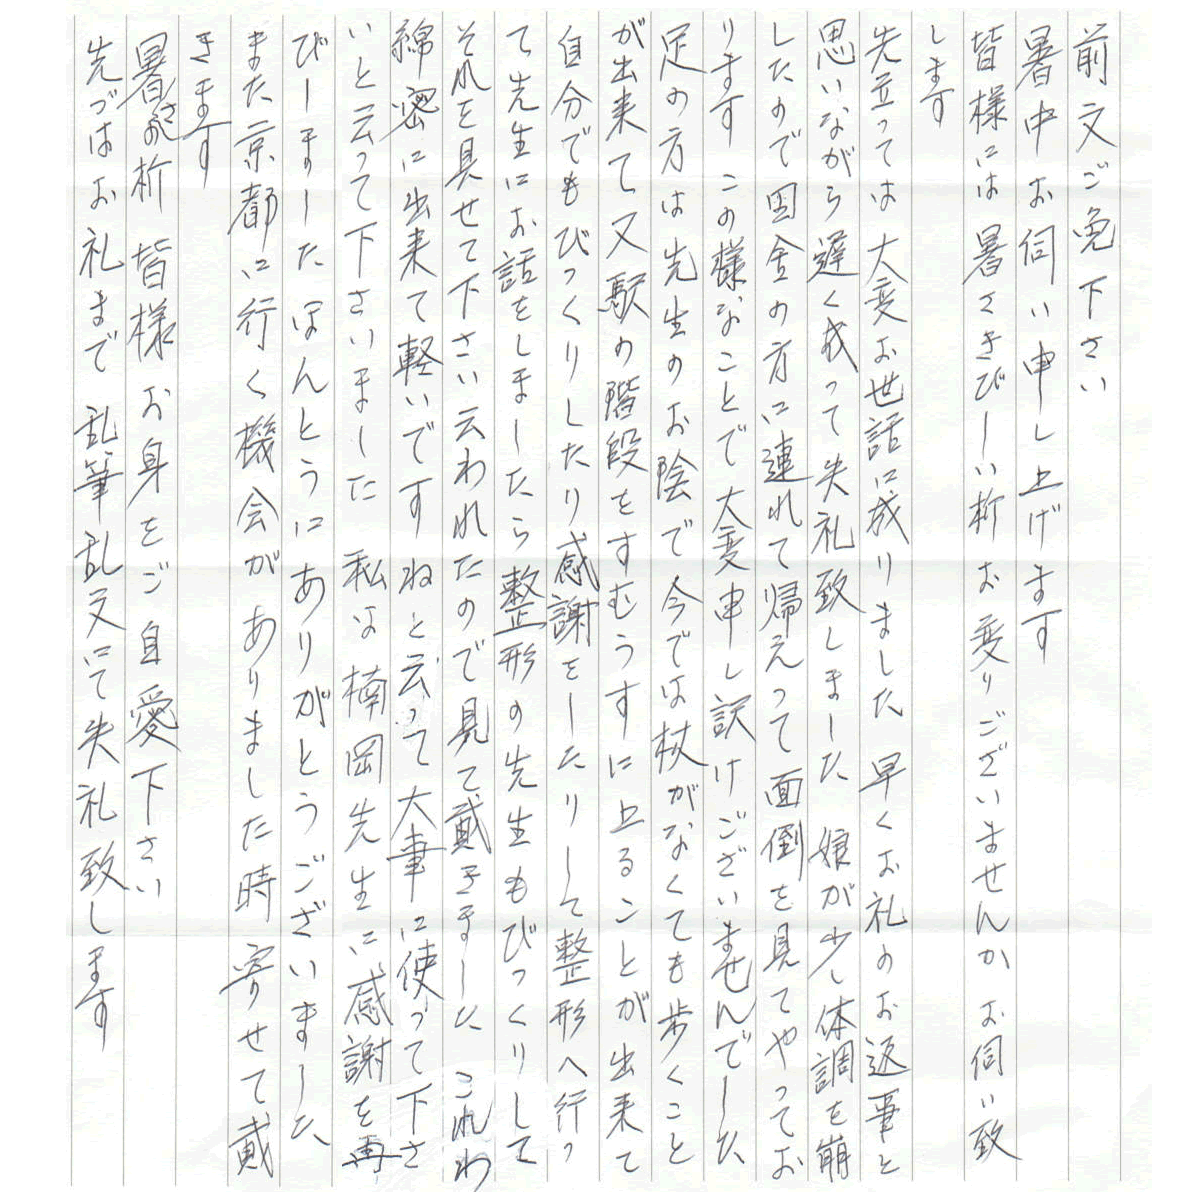 前文ご免下さい
暑中お伺い申し上げます
皆様には暑さきびしい折お変りございませんか お伺い致
します
先立っては大変お世話に成りました 早くお礼のお返事と
思いながら遅く成って失礼致しました 娘が少し体調を崩
したので田舎の方に連れて帰えって面倒を見てやってお
ります この様なことで大変申し訳けございませんでした
足の方は先生のお陰で今では杖がなくても歩くこと
が出来て又駅の階段をすむうすに上ることが出来て
自分でもびっくりしたり感謝をしたりして整形へ行っ
て先生にお話をしましたら整形の先生もびっくりして
それを見せて下さい云われたので見て戴きました これわ
綿密に出来て軽いですねと云って大事に使って下さ
いと云って下さいました 私は楠岡先生に感謝を再
びしました ほんとうにありがとうございました
また京都に行く機会がありました時 寄せて戴
きます
暑さの折 皆様お身をご自愛下さい
先づはお礼まで 乱筆乱文にて失礼致します